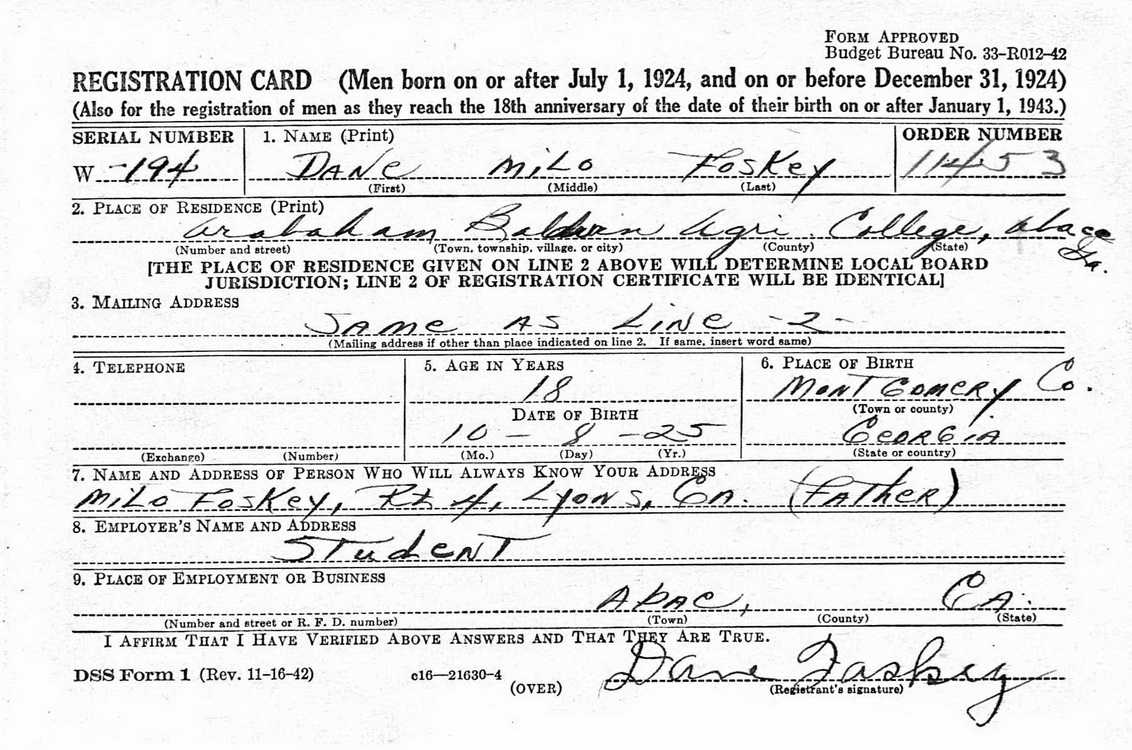 FORM APPROVED
Budget Bureau No. 33-R012-42
REGISTRATION CARD (Men born on or after July 1, 1924, and on or before December 31, 1924)
(Also for the registration of men as they reach the 18th anniversary of the date of their birth on or after January 1, 1943.)
SERIAL NUMBER 1. NAME (Print) ORDER NUMBER
W -194 DANE MILO FOSKEY 11453
(First) (Middle) (Last)
2. PLACE OF RESIDENCE (Print)
Arabaham Baldwin Agri. College, Abac Ga.
(Number and street) (Town, township, village, or city) (County) (State)
[THE PLACE OF RESIDENCE GIVEN ON LINE 2 ABOVE WILL DETERMINE LOCAL BOARD
JURISDICTION; LINE 2 OF REGISTRATION CERTIFICATE WILL BE IDENTICAL]
3. MAILING ADDRESS
SAME AS LINE -2-
(Mailing address if other than place indicated on line 2. If same, insert word same)
4. TELEPHONE 5. AGE IN YEARS 6. PLACE OF BIRTH
18 MONTGOMERY Co.
DATE OF BIRTH (Town or county)
10 - 8 - 25 GEORGIA
(Exchange) (Number) (Mo.) (Day) (Yr.) (State or country)
7. NAME AND ADDRESS OF PERSON WHO WILL ALWAYS KNOW YOUR ADDRESS
MILO FOSKEY, Rt 4, LYONS, GA. (FATHER)
8. EMPLOYER'S NAME AND ADDRESS
STUDENT
9. PLACE OF EMPLOYMENT OR BUSINESS
ABAC, GA.
(Number and street or R. F. D. number) (Town) (County) (State)
I AFFIRM THAT I HAVE VERIFIED ABOVE ANSWERS AND THAT THEY ARE TRUE.
DSS Form 1 (Rev. 11-16-42) c16—21630-4 Dane Foskey
(OVER) (Registrant's signature)